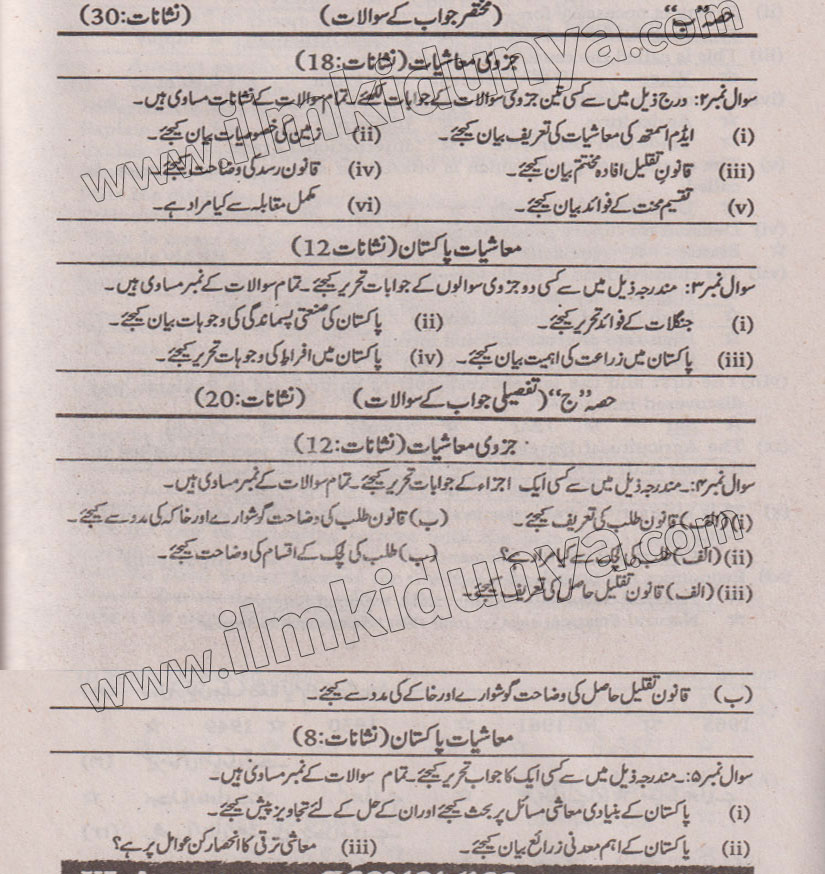 حصہ "ب" (مختصر جواب کے سوالات) (نشانات:30)
جزوی معاشیات (نشانات:18)
سوال نمبر۲: درج ذیل میں سے کسی تین جزوی سوالات کے جوابات لکھئے۔ تمام سوالات کے نشانات مساوی ہیں۔
(i) ایڈم اسمتھ کی معاشیات کی تعریف بیان کیجئے۔ (ii) زمین کی خصوصیات بیان کیجئے۔
(iii) قانون تقلیل افادہ مختتم بیان کیجئے۔ (iv) قانون رسد کی وضاحت کیجئے۔
(v) تقسیم محنت کے فوائد بیان کیجئے۔ (vi) مکمل مقابلہ سے کیا مراد ہے۔
معاشیات پاکستان (نشانات 12)
سوال نمبر۳: مندرجہ ذیل میں سے کسی دو جزوی سوالوں کے جوابات تحریر کیجئے۔ تمام سوالات کے نمبر مساوی ہیں۔
(i) جنگلات کے فوائد تحریر کیجئے۔ (ii) پاکستان کی صنعتی پسماندگی کی وجوہات بیان کیجئے۔
(iii) پاکستان میں زراعت کی اہمیت بیان کیجئے۔ (iv) پاکستان میں افراط کی وجوہات تحریر کیجئے۔
حصہ "ج" (تفصیلی جواب کے سوالات) (نشانات:20)
جزوی معاشیات (نشانات:12)
سوال نمبر۴:۔ مندرجہ ذیل میں سے کسی ایک اجزاء کے جوابات تحریر کیجئے۔ تمام سوالات کے نمبر مساوی ہیں۔
(i) (الف) قانون طلب کی تعریف کیجئے۔ (ب) قانون طلب کی وضاحت گوشوارے اور خاکہ کی مدد سے کیجئے۔
(ii) (الف) طلب کی لچک سے کیا مراد ہے؟ (ب) طلب کی لچک کے اقسام کی وضاحت کیجئے۔
(iii) (الف) قانون تقلیل حاصل کی تعریف کیجئے۔
(ب) قانون تقلیل حاصل کی وضاحت گوشوارے اور خاکے کی مدد سے کیجئے۔
معاشیات پاکستان (نشانات:8)
سوال نمبر۵:۔ مندرجہ ذیل میں سے کسی ایک کا جواب تحریر کیجئے۔ تمام سوالات کے نمبر مساوی ہیں۔
(i) پاکستان کے بنیادی معاشی مسائل پر بحث کیجئے اور ان کے حل کے لئے تجاویز پیش کیجئے۔
(ii) پاکستان کے اہم معدنی زرائع بیان کیجئے۔ (iii) معاشی ترقی کا انحصار کن عوامل پر ہے؟
www.ilmkidunya.com
www.ilmkidunya.com